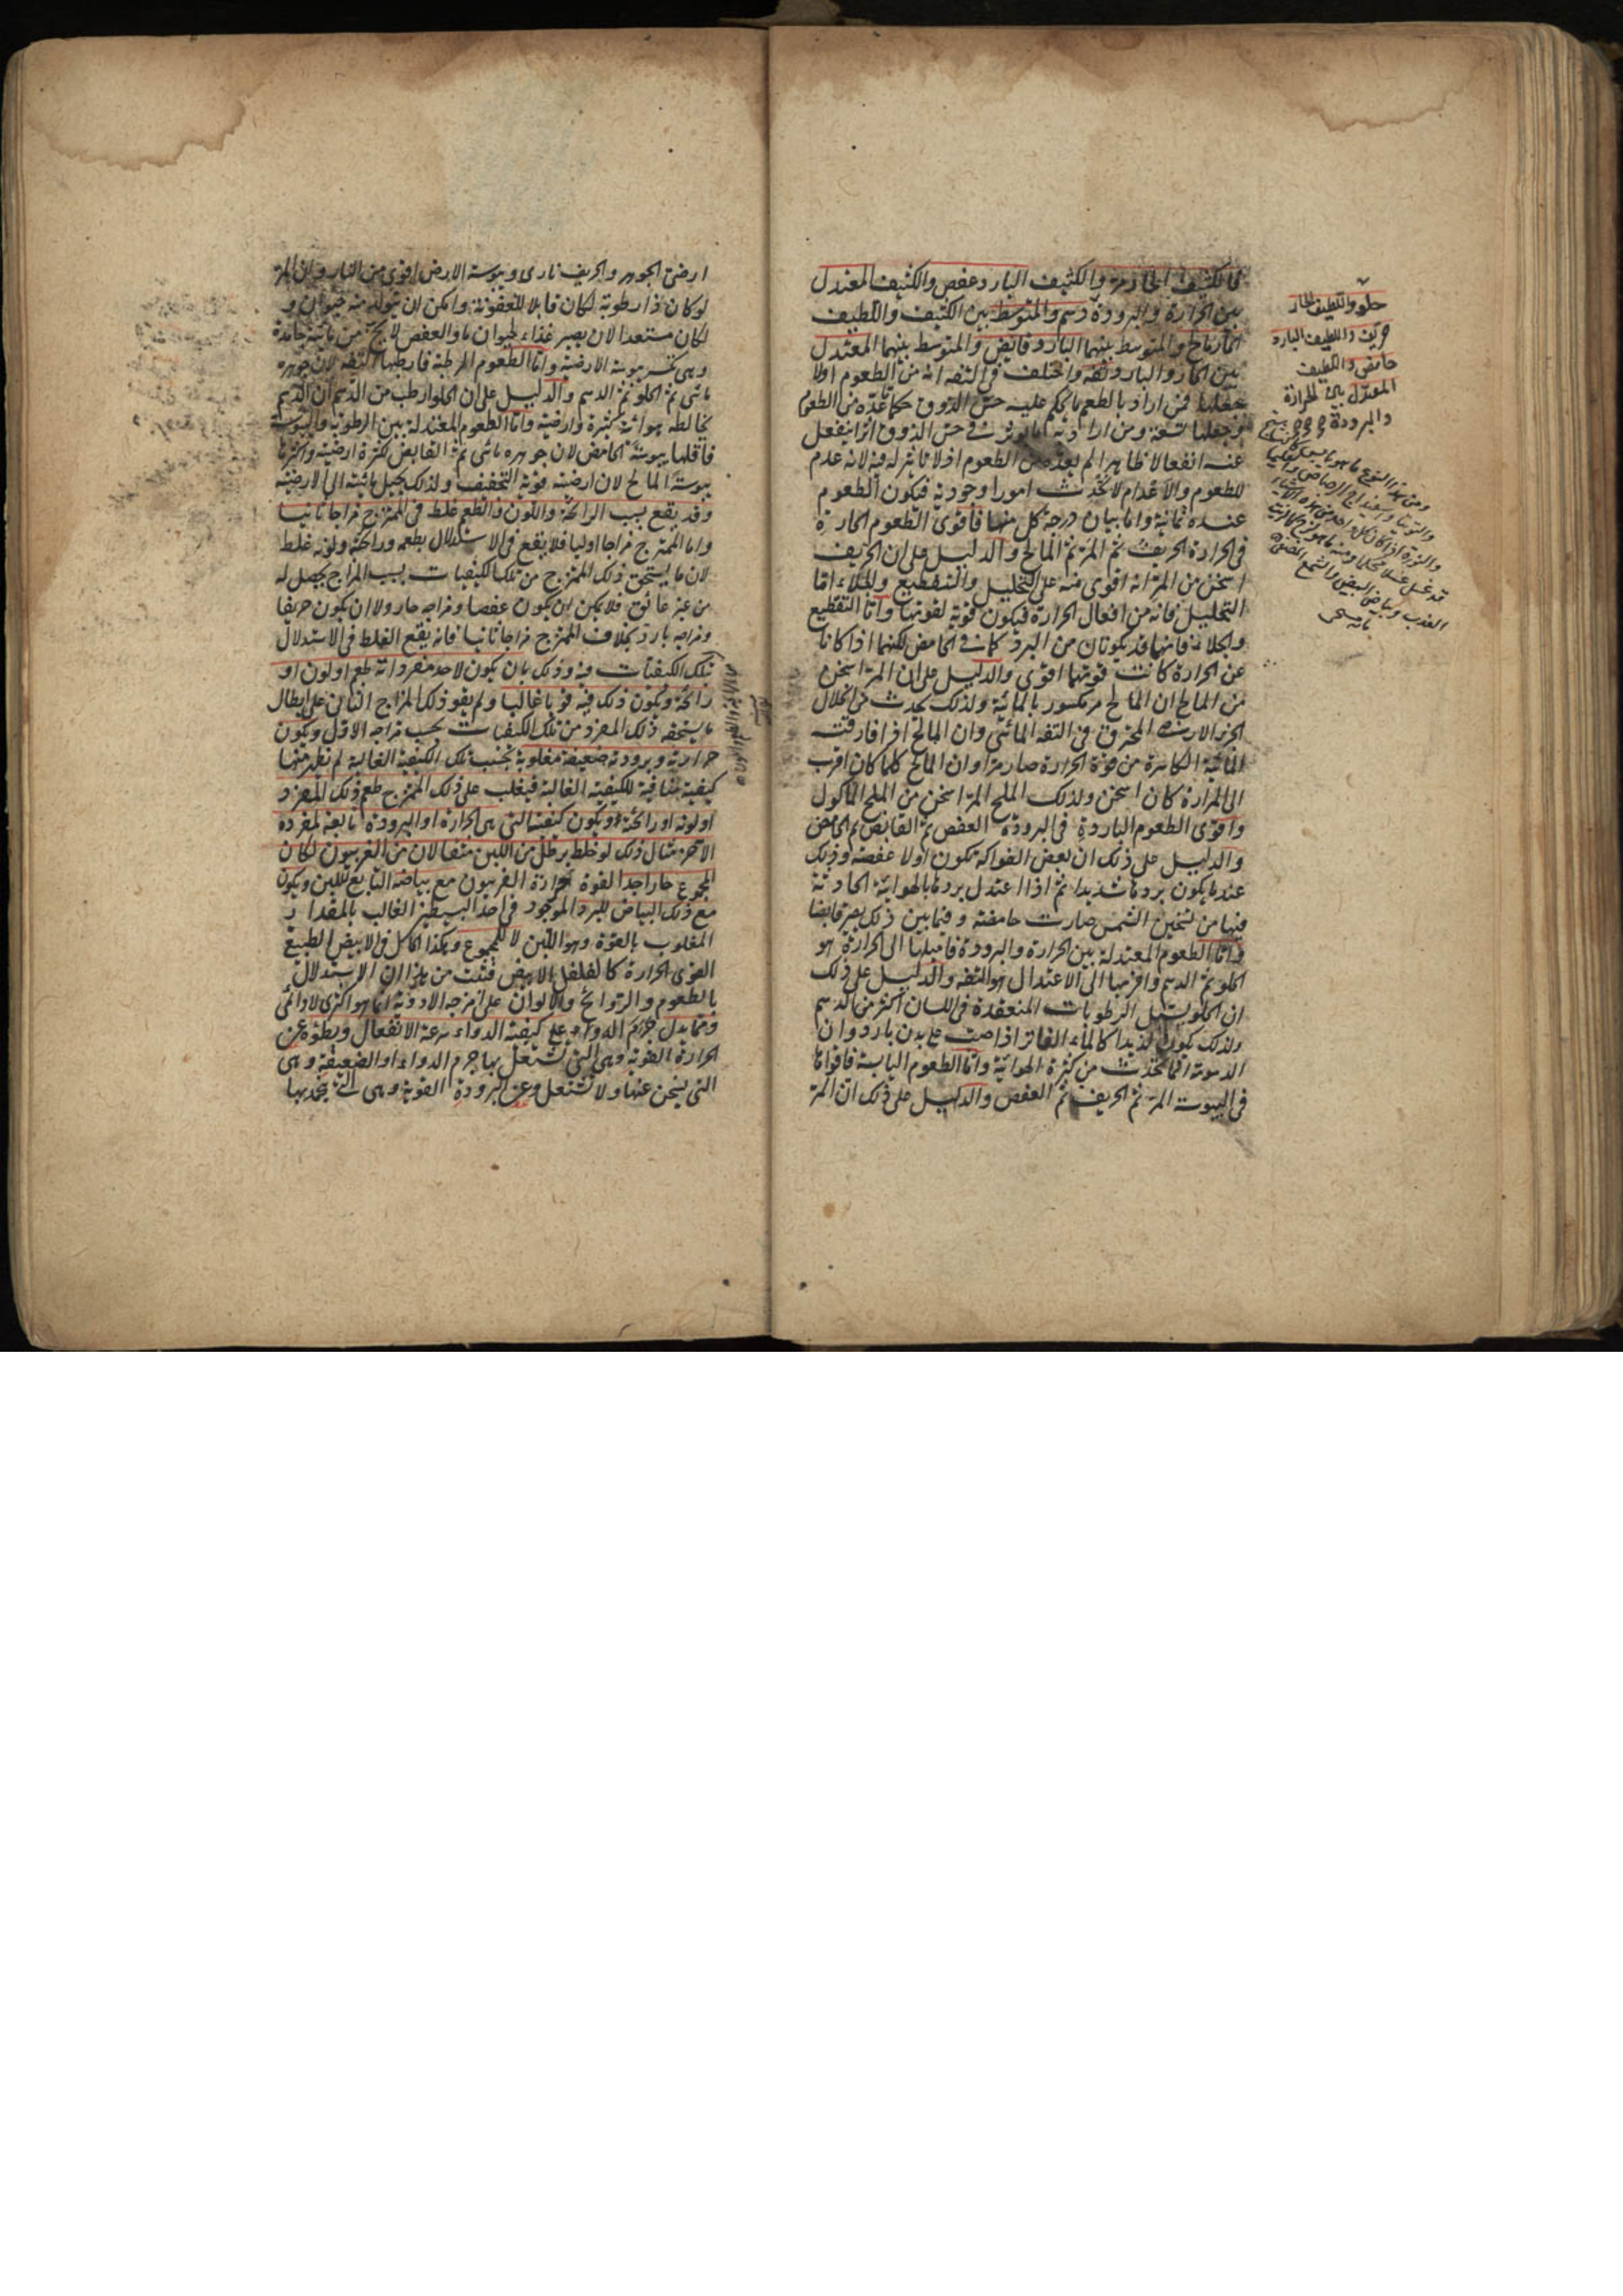 فالكثيف الحار مر والكثيف البارد عفص والكثيف المعتدل
بين الحرارة والبرودة دسم والمتوسط بين الكثيف واللطيف
الحار مالح والمتوسط بينهما البارد قابض والمتوسط بينهما المعتدل
بين الحار والبارد تفه واختلف في التفه انه من الطعوم اولا
فمن اراد بالطعم ما يحكم عليه حس الذوق حكما عده من الطعوم
وجعلها تسعة ومن اراد به ما يؤثر في حس الذوق اثرا ينفعل
عنه انفعالا ظاهرا لم يعده من الطعوم اذ لا تاثير له فيه لانه عدم
للطعوم والاعدام لا تحدث امورا وجودية فيكون الطعوم
عنده ثمانية واما بيان درجة كل منها فاقوى الطعوم الحارة
في الحرارة الحريف ثم المر ثم المالح والدليل على ان الحريف
اسخن من المر انه اقوى منه على التحليل والتقطيع والجلاء اما
التحليل فانه من افعال الحرارة فيكون قوته لقوتها واما التقطيع
والجلاء فانهما قد يكونان من البرد كما في الحامض لكنهما اذا كانا
عن الحرارة كانت قوتهما اقوى والدليل على ان المر اسخن
من المالح ان المالح مر مكسور بالمائية ولذلك يحدث من انحلال
الجزء الارضي المحترق في التفه المائي وان المالح اذا فارقت
المائية الكاسرة من قوة الحرارة صار مرا وان المالح كلما كان اقرب
الى المرارة كان اسخن ولذلك الملح المر اسخن من الملح الماكول
واقوى الطعوم الباردة في البرودة العفص ثم القابض ثم الحامض
والدليل على ذلك ان بعض الفواكه تكون اولا عفصة وذلك
عندما يكون بردها شديدا ثم اذا اعتدل بردها بالهوائية الحادثة
فيها من تسخين الشمس صارت حامضة وفيما بين ذلك يصير قابضا
واما الطعوم المعتدلة بين الحرارة والبرودة فاميلها الى الحرارة هو
الحلو ثم الدسم واقربها الى الاعتدال هو التفه والدليل على ذلك
ان الحلو يسيل الرطوبات المنعقدة في اللسان اكثر من الدسم
ولذلك يكون لذيذا كالماء الفاتر اذا صب على بدن بارد وان
الدسومة انما تحدث من كثرة الهوائية واما الطعوم اليابسة فاقواها
في اليبوسة المر ثم الحريف ثم العفص والدليل على ذلك ان المر
حلو واللطيف الحار
حريف واللطيف البارد
حامض واللطيف
المعتدل بين الحرارة
والبرودة
ارضي الجوهر والحريف ناري ويبوسة الارض اقوى من النار وان المر
لو كان ذا رطوبة لكان قابلا للعفونة وامكن ان يتولد منه حيوان و
لكان مستعدا لان يصير غذاء لحيوان ما والعفص لا يخ من مائية جامدة
وهي تكسر يبوسة الارضية واما الطعوم الرطبة فارطبها التفه لان جوهره
مائي ثم الحلو ثم الدسم والدليل على ان الحلو ارطب من الدسم ان الدسم
يخالطه هوائية كثيرة وارضية واما الطعوم المعتدلة بين الرطوبة واليبوسة
فاقلها يبوسة الحامض لان جوهره مائي ثم القابض لكثرة ارضيته واكثرها
يبوسة المالح لان ارضيته قوية التجفيف ولذلك يحيل مائيته الى الارضية
وقد يقع بسبب الرائحة واللون والطعم غلط في الممتزج مزاجا ثانيا
واما الممتزج مزاجا اوليا فلا يقع في الاستدلال بطعمه ورائحته ولونه غلط
لان ما يستحق ذلك الممتزج من تلك الكيفيات بسبب المزاج يحصل له
من غير عائق فلا يمكن ان يكون عفصا ومزاجه حار ولا ان يكون حريفا
ومزاجه بارد بخلاف الممتزج مزاجا ثانيا فانه يقع الغلط في الاستدلال
بتلك الكيفيات فيه وذلك بان يكون لاحد مفرداته طعم او لون او
رائحة ويكون ذلك فيه قويا غالبا ولم يقو ذلك المزاج الثاني على ابطال
ما يستحقه ذلك المفرد من تلك الكيفيات بحسب مزاجه الاول ويكون
حرارته وبرودته ضعيفة مغلوبة بجنب تلك الكيفية الغالبة لم تظهر منهما
كيفية منافية للكيفية الغالبة فيغلب على ذلك الممتزج طعم ذلك المفرد
او لونه او رائحته ويكون كيفيته التي هي الحرارة او البرودة تابعة لمفرده
الاخر مثال ذلك لو خلط برطل من اللبن مثقالان من الفربيون لكان
المجموع حارا جدا لقوة حرارة الفربيون مع بياضه التابع للبن ويكون
مع ذلك البياض للبرد الموجود في احد البسيطين الغالب بالمقدار
المغلوب بالقوة وهو اللبن لا للمجموع وهكذا الحال في الابيض الطبيعي
القوي الحرارة كالفلفل الابيض فثبت من هذا ان الاستدلال
بالطعوم والروائح والالوان على امزجة الادوية انما هو اكثري لا دائمي
ومما يدل جرم الدواء على كيفية الدواء سرعة الانفعال وبطؤه عن
الحرارة القوية وهي التي تشتعل بها جرم الدواء او الضعيفة وهي
التي يسخن عنها ولا تشتعل وعن البرودة القوية وهي التي يجمد بها